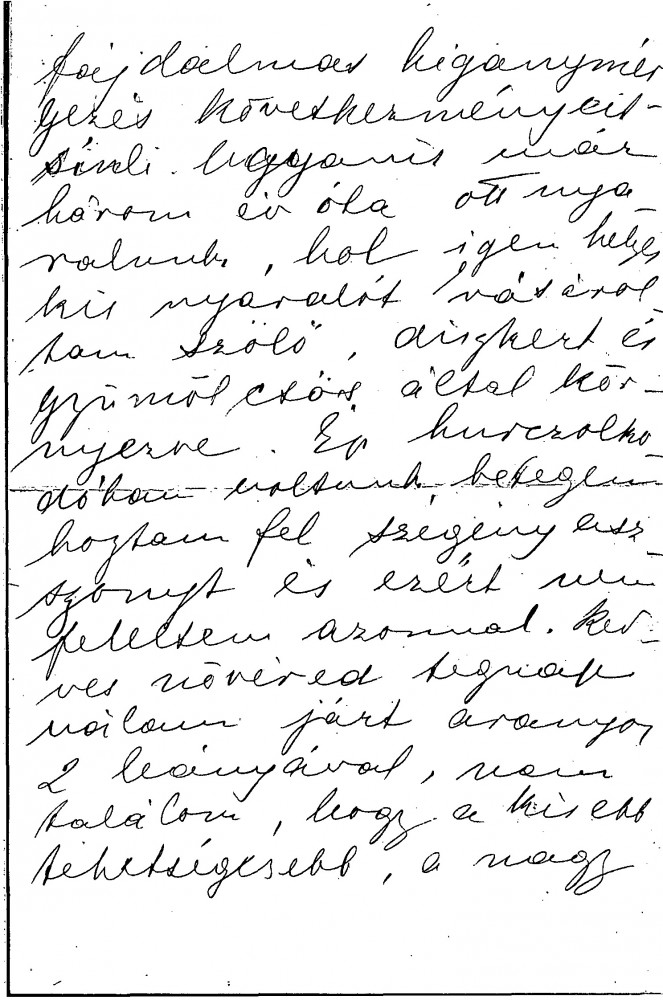 fájdalmas higanymér
gezés következményeit
sínli. Ugyanis már
három év óta ott nya-
ralunk, hol igen helyes
kis nyaralót vásárol
tam szőlő, diszkert és
gyümölcsös által kör-
nyezve. Ép hurczolko-
dóban voltunk, betegen
hoztam fel szegény asz
szonyt és ezért nem
feleltem azonnal. Ked-
ves nővéred tegnap
nálam járt aranyos
2 leányával, nem
találom, hogy a kisebb
tehetségesebb, a nagy